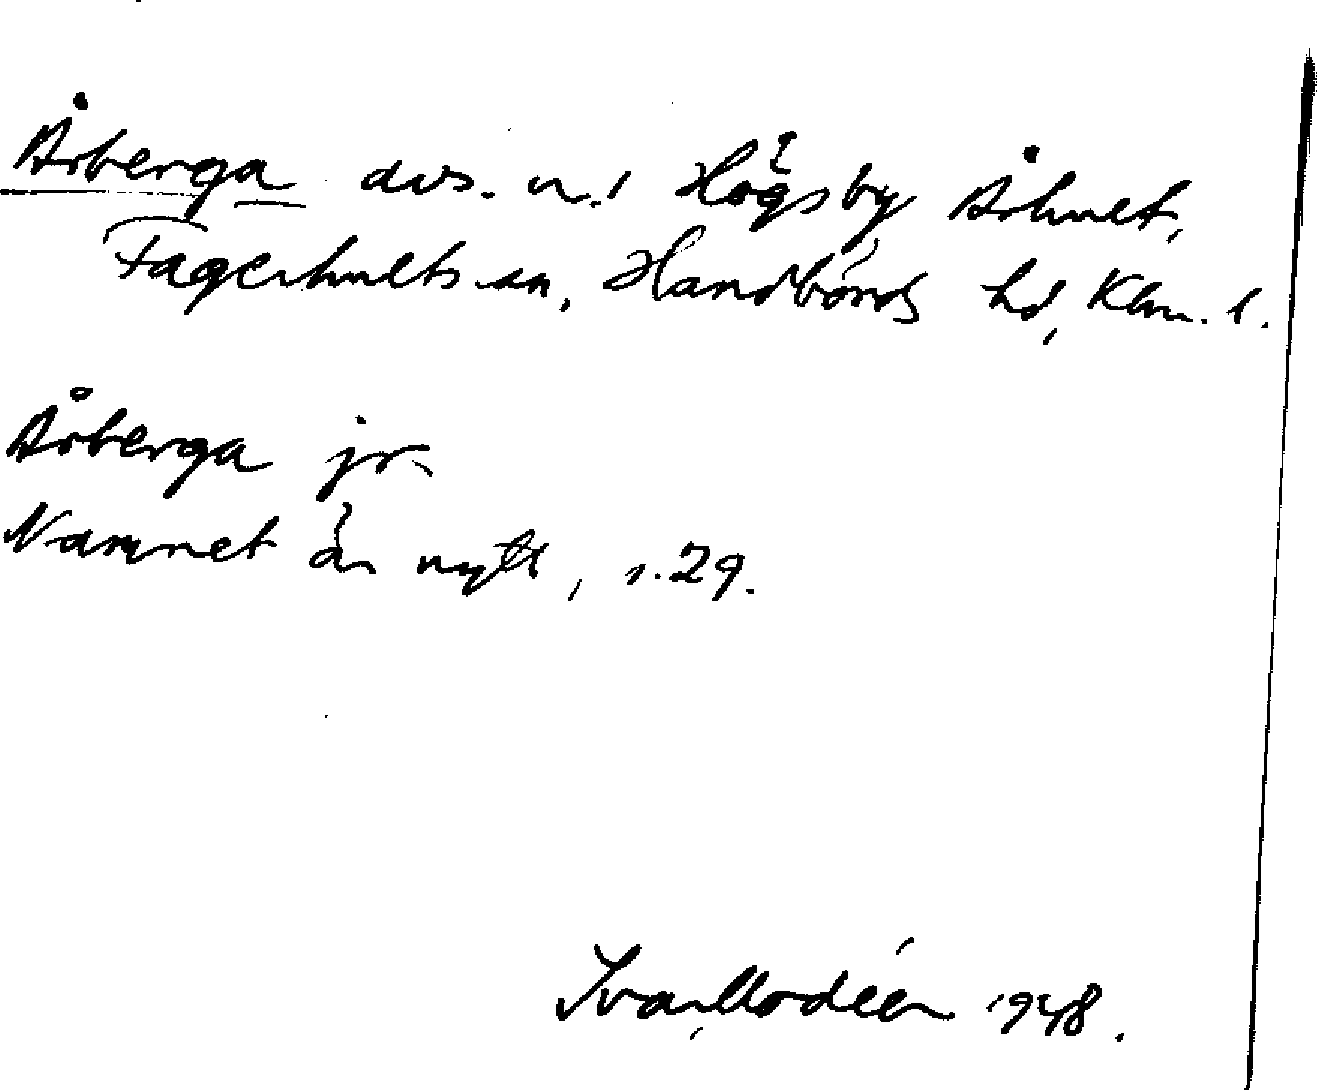 Årberga avs. u. Högsby Århult,
Fagerhults sn, Handbörds hd, Klm. l.
Årberga jr
Namnet är nytt, s. 29.
Ivar Modéer 1948.